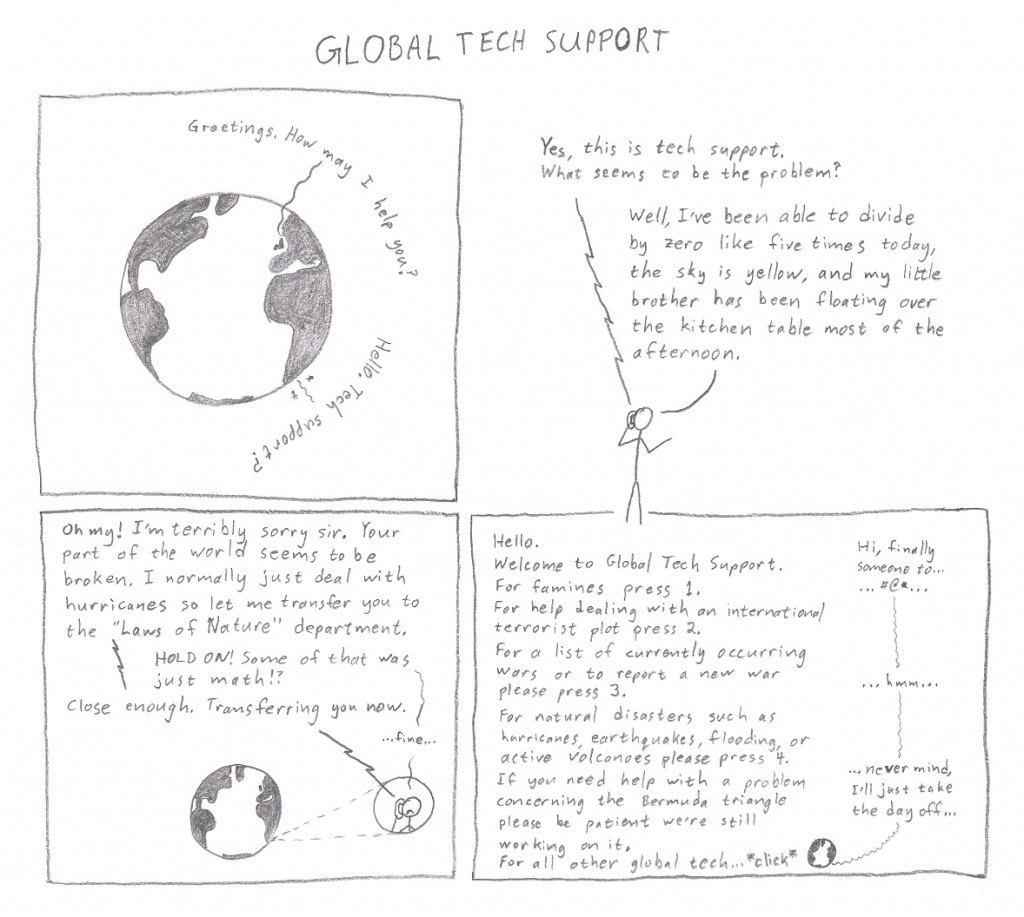 GLOBAL TECH SUPPORT
Greetings. How may I help you?
Hello. Tech support?
Yes, this is tech support.
What seems to be the problem?
Well, I've been able to divide
by zero like five times today,
the sky is yellow, and my little
brother has been floating over
the kitchen table most of the
afternoon.
Oh my! I'm terribly sorry sir. Your
part of the world seems to be
broken. I normally just deal with
hurricanes so let me transfer you to
the "Laws of Nature" department.
HOLD ON! Some of that was
just math!?
Close enough. Transferring you now.
...fine...
Hello.
Welcome to Global Tech Support.
For famines press 1.
For help dealing with an international
terrorist plot press 2.
For a list of currently occurring
wars or to report a new war
please press 3.
For natural disasters such as
hurricanes, earthquakes, flooding, or
active volcanoes please press 4.
If you need help with a problem
concerning the Bermuda triangle
please be patient we're still
working on it.
For all other global tech...*click*
Hi, finally
someone to...
... #@*...
...hmm...
...never mind,
I'll just take
the day off...